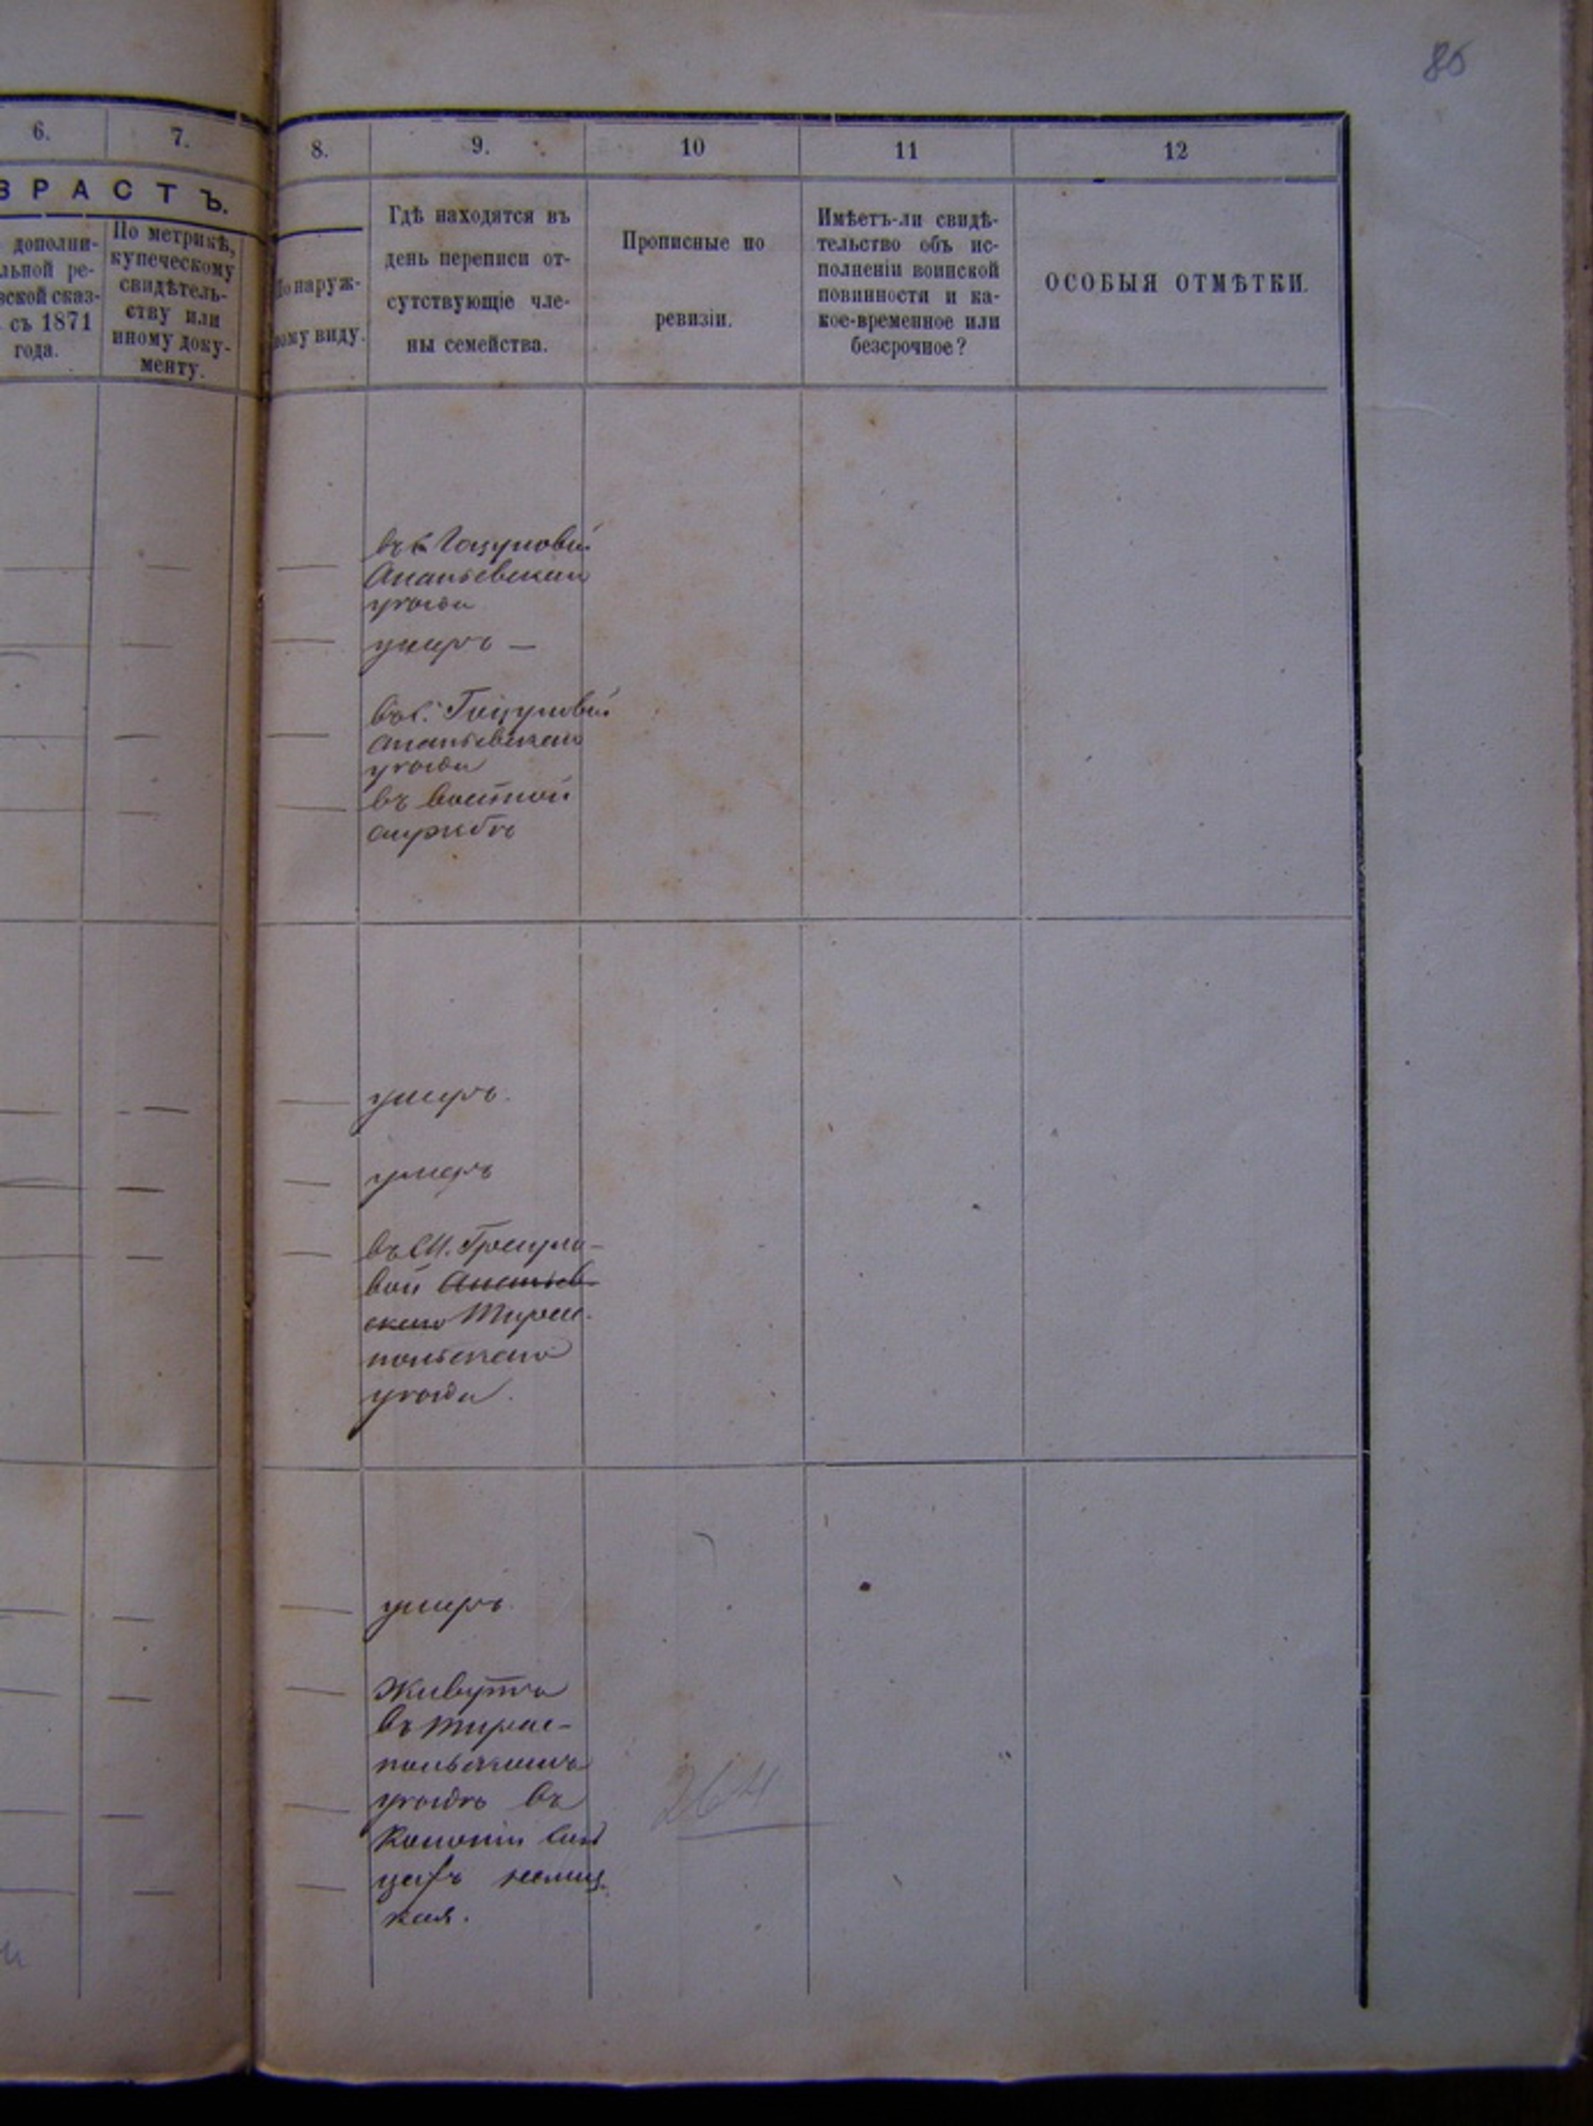 85
6.
7.
8.
9.
10
11
12
ЗРАСТЪ.
дополни-
льной ре-
вской сказ-
съ 1871
года.
По метрикѣ,
купеческому
свидѣтель-
ству или
иному доку-
менту.
По наруж-
ному виду.
Гдѣ находятся въ
день переписи от-
сутствующіе чле-
ны семейства.
Прописные по
ревизіи.
Имѣетъ-ли свидѣ-
тельство объ ис-
полненіи воинской
повинности и ка-
кое-временное или
безсрочное?
ОСОБЫЯ ОТМѢТКИ.
въ с.
Ананьевскаго
уѣзда
умеръ —
въ с.
Ананьевскаго
уѣзда
въ военной
службѣ
умеръ.
умеръ
въ М. Гросуло-
вой Ананьев-
скаго Тирас-
польскаго
уѣзда.
умеръ.
Живутъ
въ Тирас-
польскомъ
уѣздѣ въ
Колоніи
немец
кая.
264